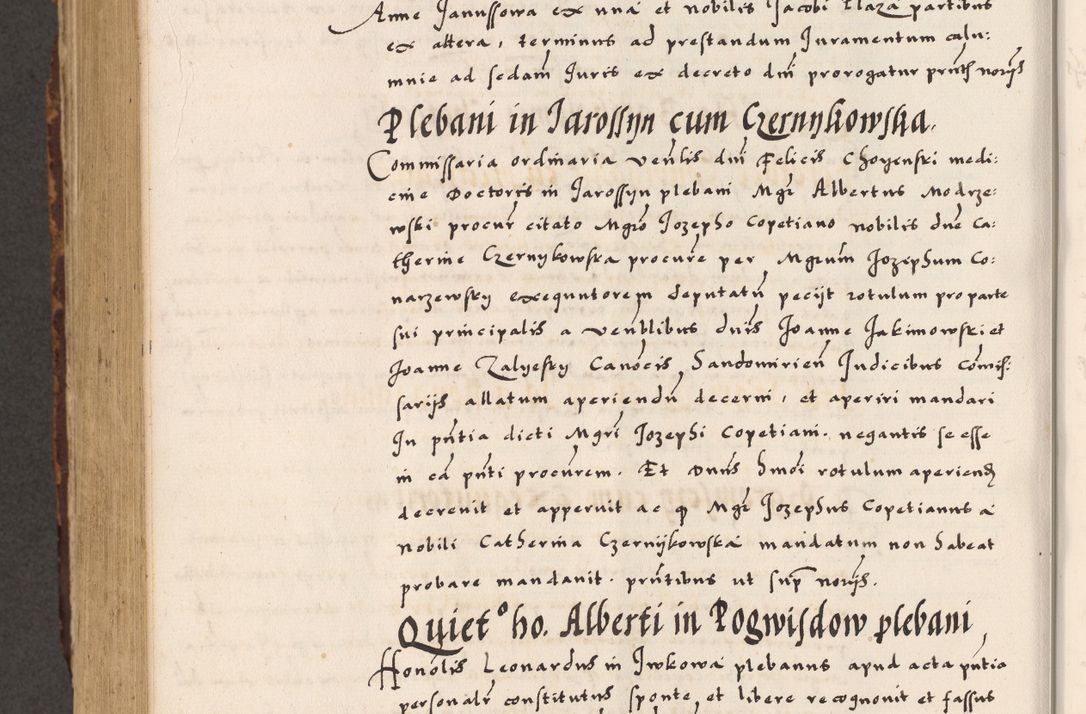 Anne Janussowa ex una et nobilis Jacobi Llaza partibus
ex altera, terminus ad prestandum Juramentum calu:
mnie ad sedam Juris ex decreto dni prorogatur pntb norijs
Plebani in Jarossyn cum Czernykowska.
Commissaria ordinaria venlis dni Felicis Choyenski medi:
cine Doctoris in Jarossyn plebani Mgr Albertus Modrze:
wski procur citato Mgro Jozepho Copetiano nobilis dne Ca:
therine Czernykowska procure per Mgrum Jozephum Co:
narzewsky exequutorem deputatu pecijt rotulum pro parte
sui principalis a venblibus dnis Joanne Jakimowski et
Joanne Zalyesky Canocis Sandomirien Judicibus Comis:
sarijs allatum aperiendu decerni, et aperiri mandari
In pntia dicti Mgri Jozephi Copetiani. negantis se esse
in ea pnti procurem. Et Dnus hmoi rotulum aperiend
decrevit et apperuit ac q Mgr Jozephus Copetianus a
nobili Catherina Czernijkowska mandatum non habeat
probare mandauit. prntibus ut sup norijs.
Quiet° ho. Alberti in Pogwisdow plebani
Honolis Leonardus in Iwkowa plebanus apud acta pntia
personalr constitutus sponte, et libere recognovit et fassus